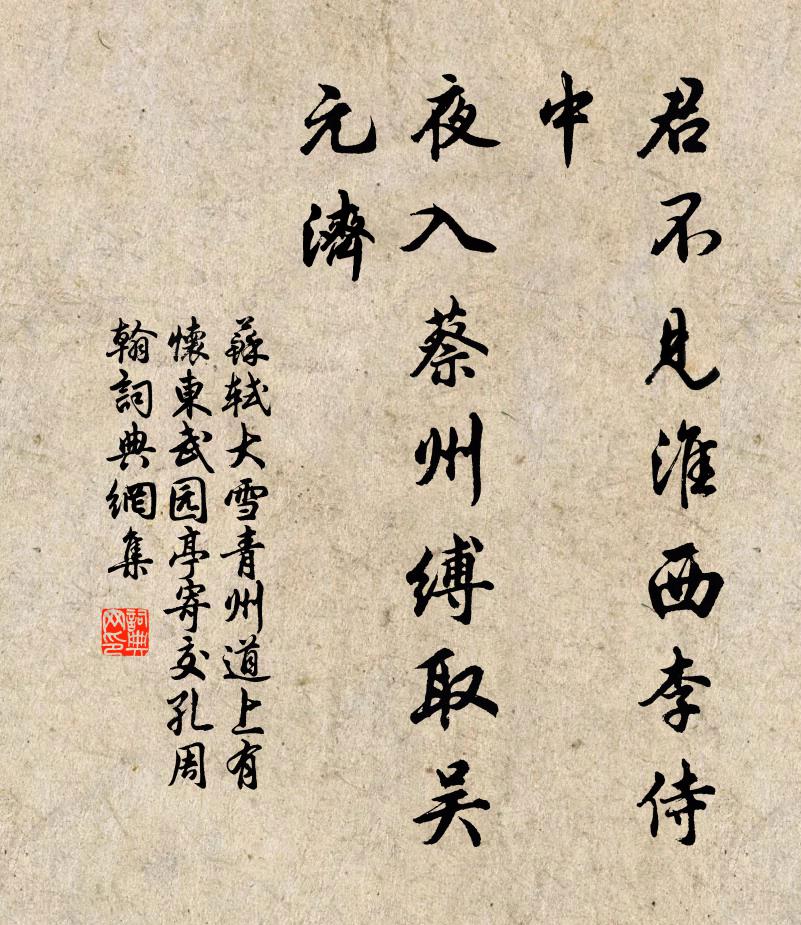 君不見淮西李侍
中
夜入蔡州縛取吴
元濟
蘇軾大雪青州道上有
懷東武园亭寄交孔周
翰詞典網集
詞典网印